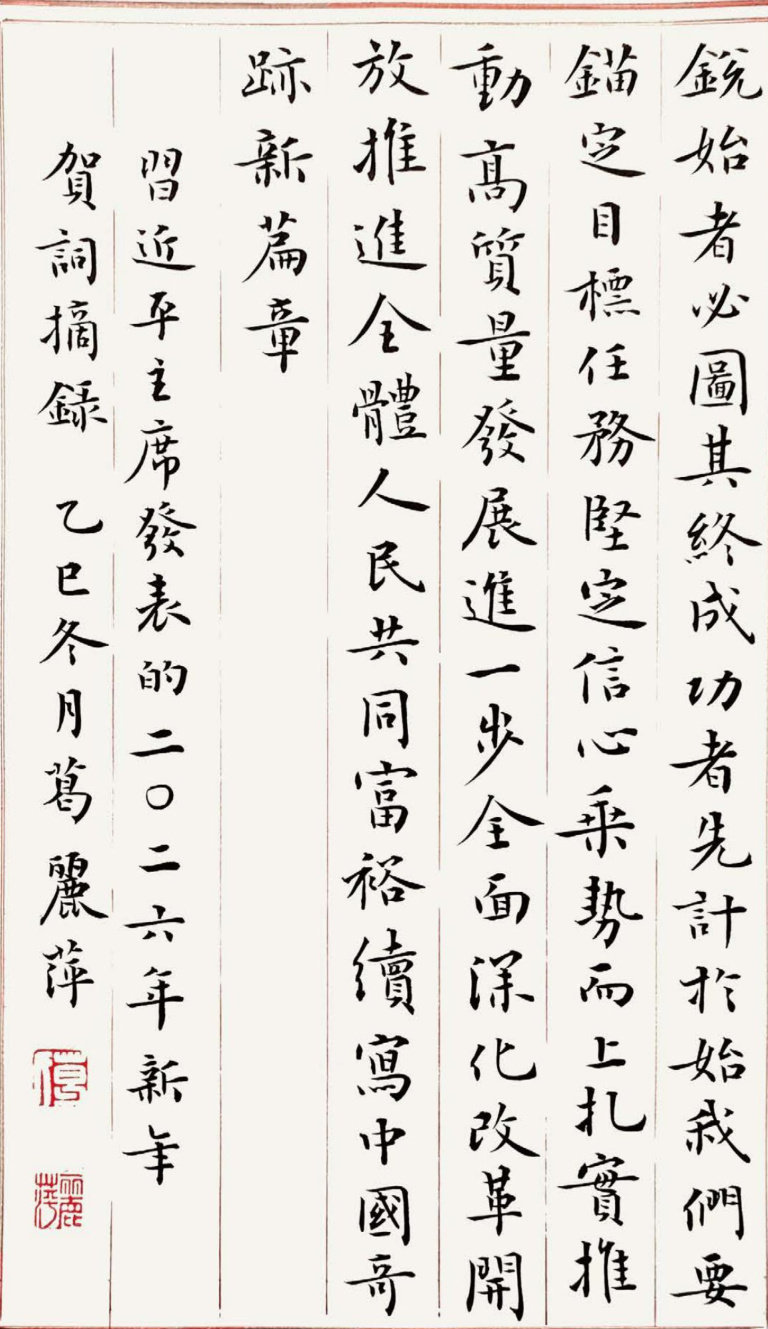 銳始者必圖其終成功者先計於始我們要
錨定目標任務堅定信心乘勢而上扎實推
動高質量發展進一步全面深化改革開
放推進全體人民共同富裕續寫中國奇
跡新篇章
習近平主席發表的二〇二六年新年
賀詞摘錄 乙巳冬月葛麗萍
麗萍